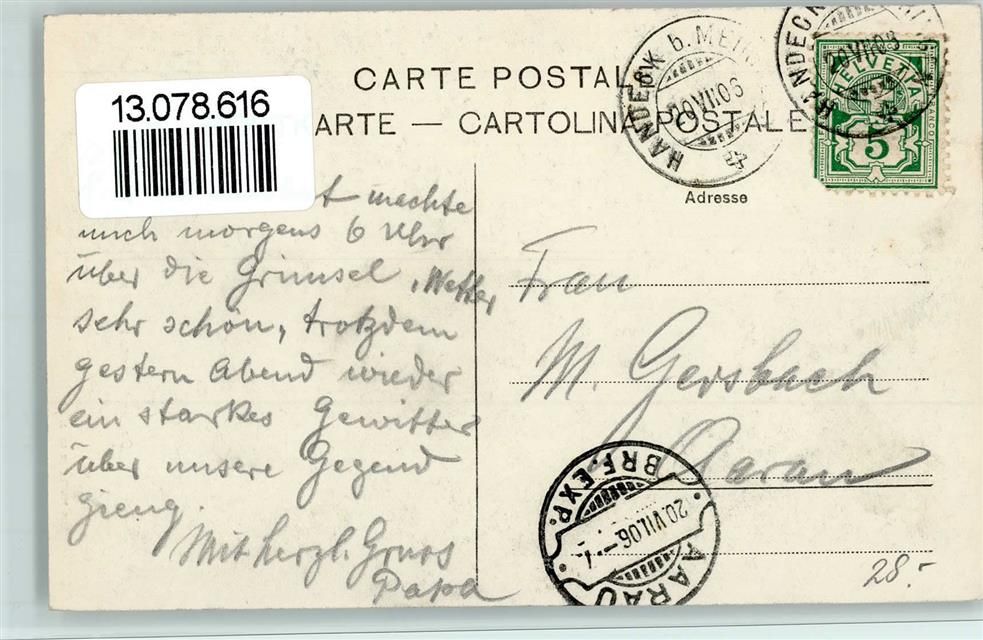 13.078.616
CARTE POSTAL
ARTE — CARTOLINA POSTALE
HANDECK b. MEI
20 VII 06
HANDECK
20 VII 06
HELVETIA
5
Adresse
t machte
mich morgens 6 Uhr
über die Grimsel, Wetter
sehr schön, trotzdem
gestern Abend wieder
ein starkes Gewitter
über unsere Gegend
gieng.
Mit herzl. Gruss
Papa
Frau
M. Gersbach
Aarau
AARAU
BRF. EXP.
20.VII.06.
28.-